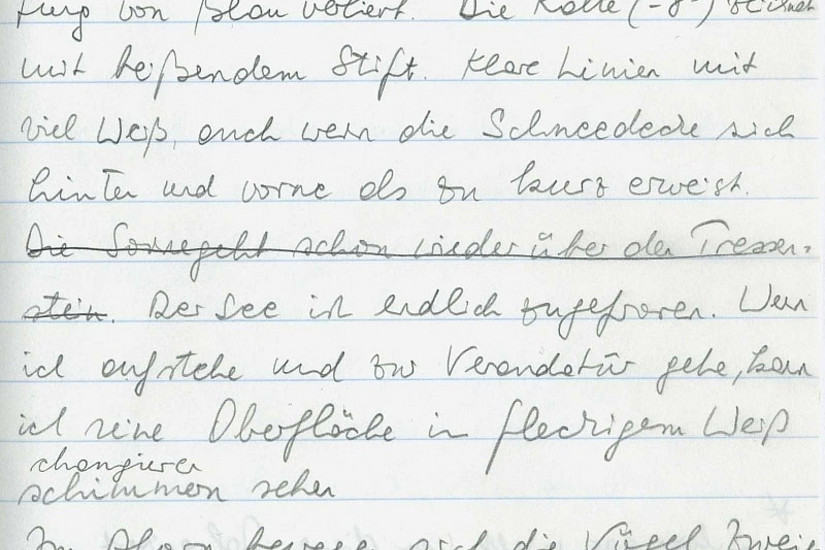 von Blau votiert. Die Kälte (-8°) zeichnet
mit beißendem Stift. Klare Linien mit
viel Weiß, auch wenn die Schneedecke sich
hinten und vorne als zu kurz erweist.
Die Sonne geht schon wieder über den Tressen-
stein. Der See ist endlich zugefroren. Wenn
ich aufstehe und zur Verandatür gehe, kann
ich seine Oberfläche in fleckigem Weiß
changieren
schimmern sehen
bewegen sich die Vögel